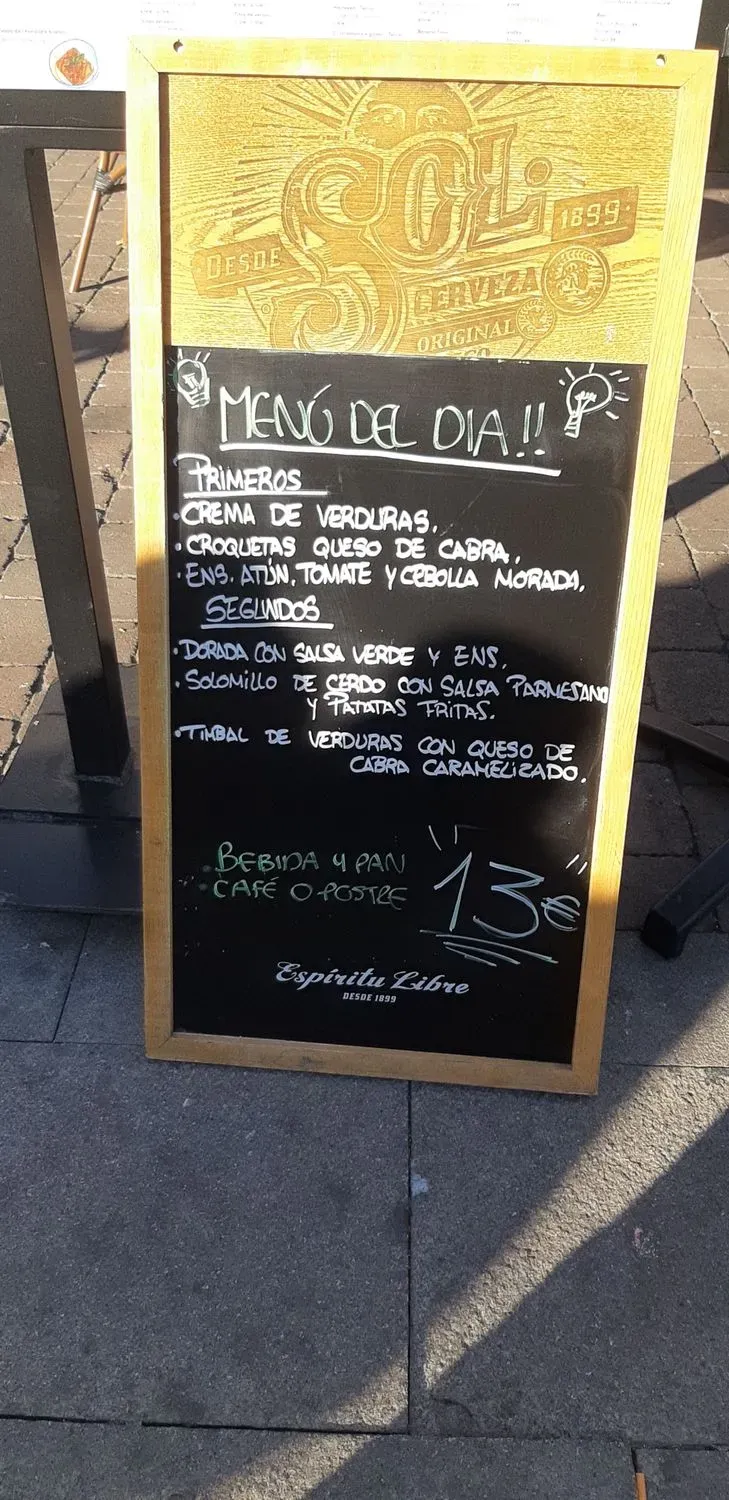 SOL
DESDE
1899
CERVEZA
ORIGINAL
MENÚ DEL DIA!!
PRIMEROS
· CREMA DE VERDURAS.
· CROQUETAS QUESO DE CABRA.
· ENS. ATÚN, TOMATE Y CEBOLLA MORADA.
SEGUNDOS
· DORADA CON SALSA VERDE Y ENS.
· SOLOMILLO DE CERDO CON SALSA PARMESANO
Y PATATAS FRITAS.
· TIMBAL DE VERDURAS CON QUESO DE
CABRA CARAMELIZADO.
· BEBIDA Y PAN
· CAFÉ O POSTRE
13€
Espíritu Libre
DESDE 1899